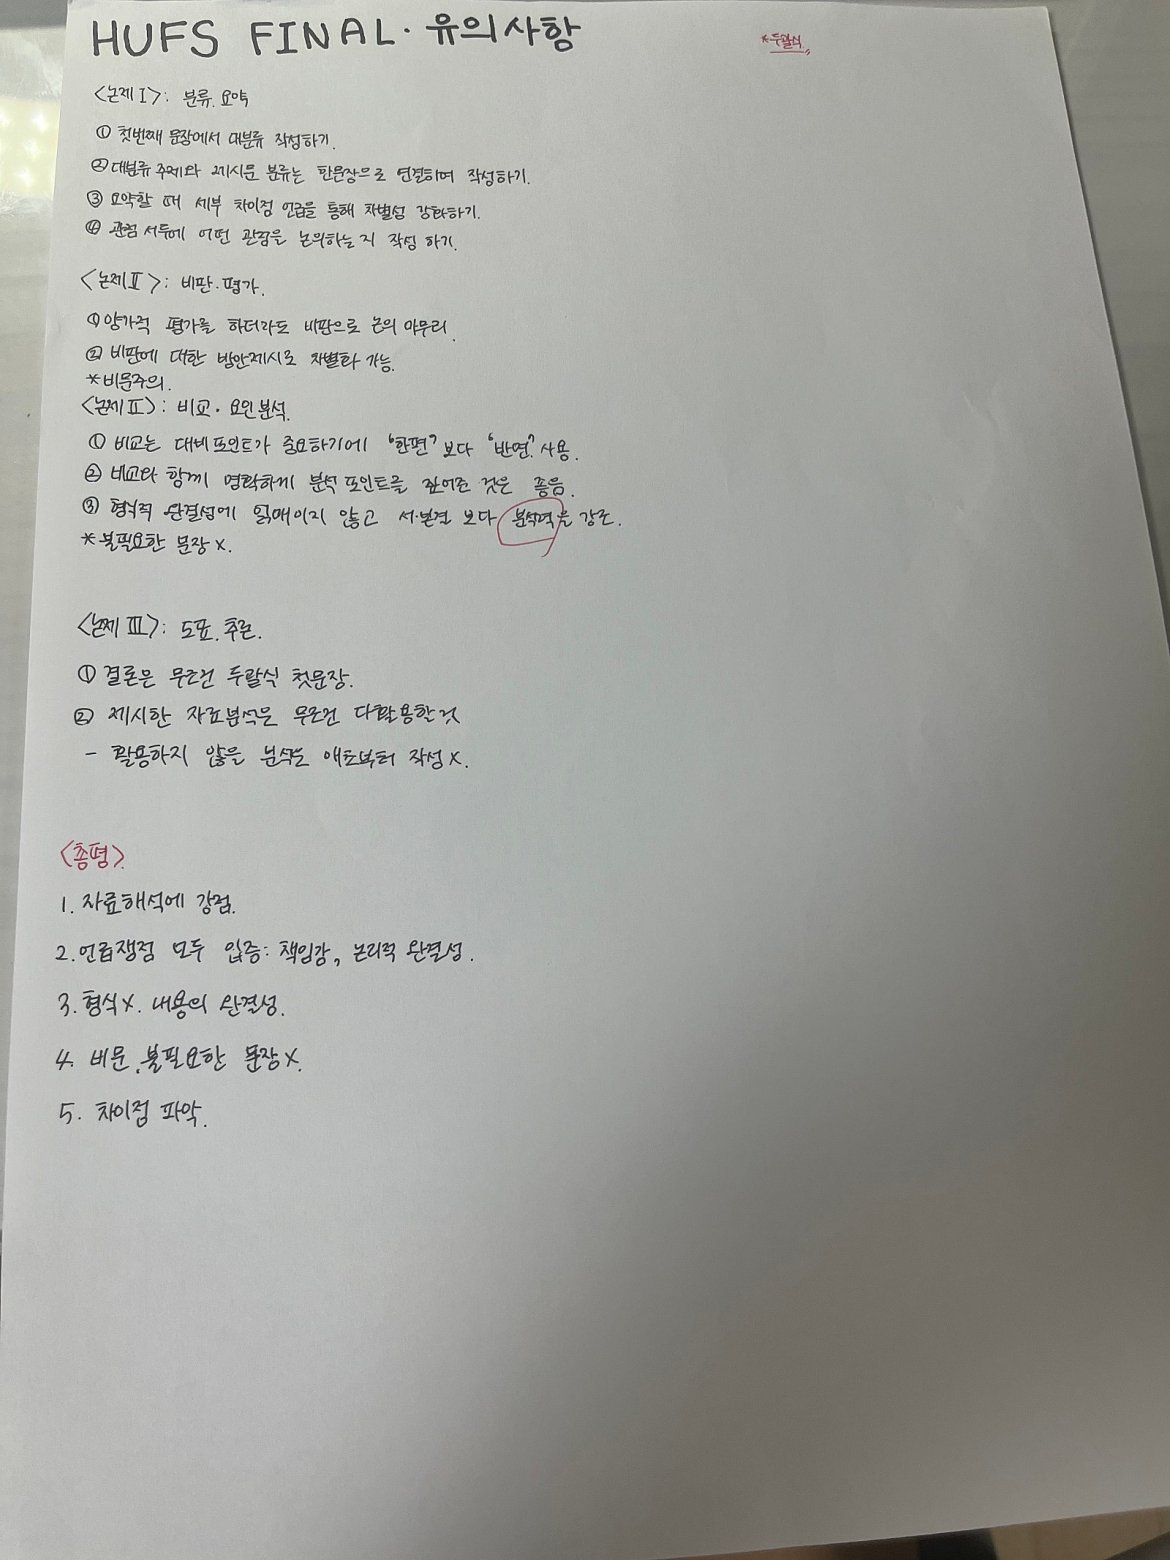 HUFS FINAL· 유의사항
*두괄식
<논제 I>: 분류. 요약
① 첫번째 문장에서 대분류 작성하기.
② 대분류 주제와 제시문 분류는 한문장으로 연결하여 작성하기.
③ 요약할 때 세부 차이점 언급을 통해 차별성 강화하기.
④ 관점 서두에 어떤 관점을 논의하는지 작성 하기.
<논제 II>: 비판·평가.
① 양가적 평가를 하더라도 비판으로 논의 마무리.
② 비판에 대한 방안제시로 차별화 가능.
*비문주의.
<논제 II>: 비교·요인분석.
① 비교는 대비포인트가 중요하기에 "한편" 보다 "반면" 사용.
② 비교와 함께 명확하게 분석 포인트를 짚어준 것은 좋음.
③ 형식적 완결성에 얽매이지 않고 서·본·결 보다 분석력을 강조.
*불필요한 문장 x.
<논제 III>: 도표. 추론.
① 결론은 무조건 두괄식 첫문장.
② 제시한 자료분석은 무조건 다활용할것
- 활용하지 않을 분석는 애초부터 작성x.
<총평>.
1. 자료해석에 강점.
2. 언급쟁점 모두 입증: 책임감, 논리적 완결성.
3. 형식x. 내용의 완결성.
4. 비문.불필요한 문장x.
5. 차이점 파악.